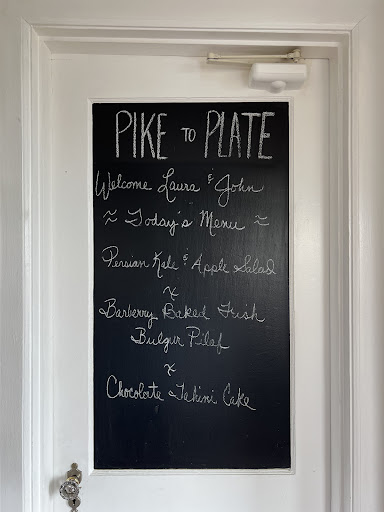 PIKE TO PLATE
Welcome Laura & John
~ Today's Menu ~
Persian Kale & Apple Salad
x
Barberry Baked Fish
Bulgur Pilaf
x
Chocolate Tahini Cake